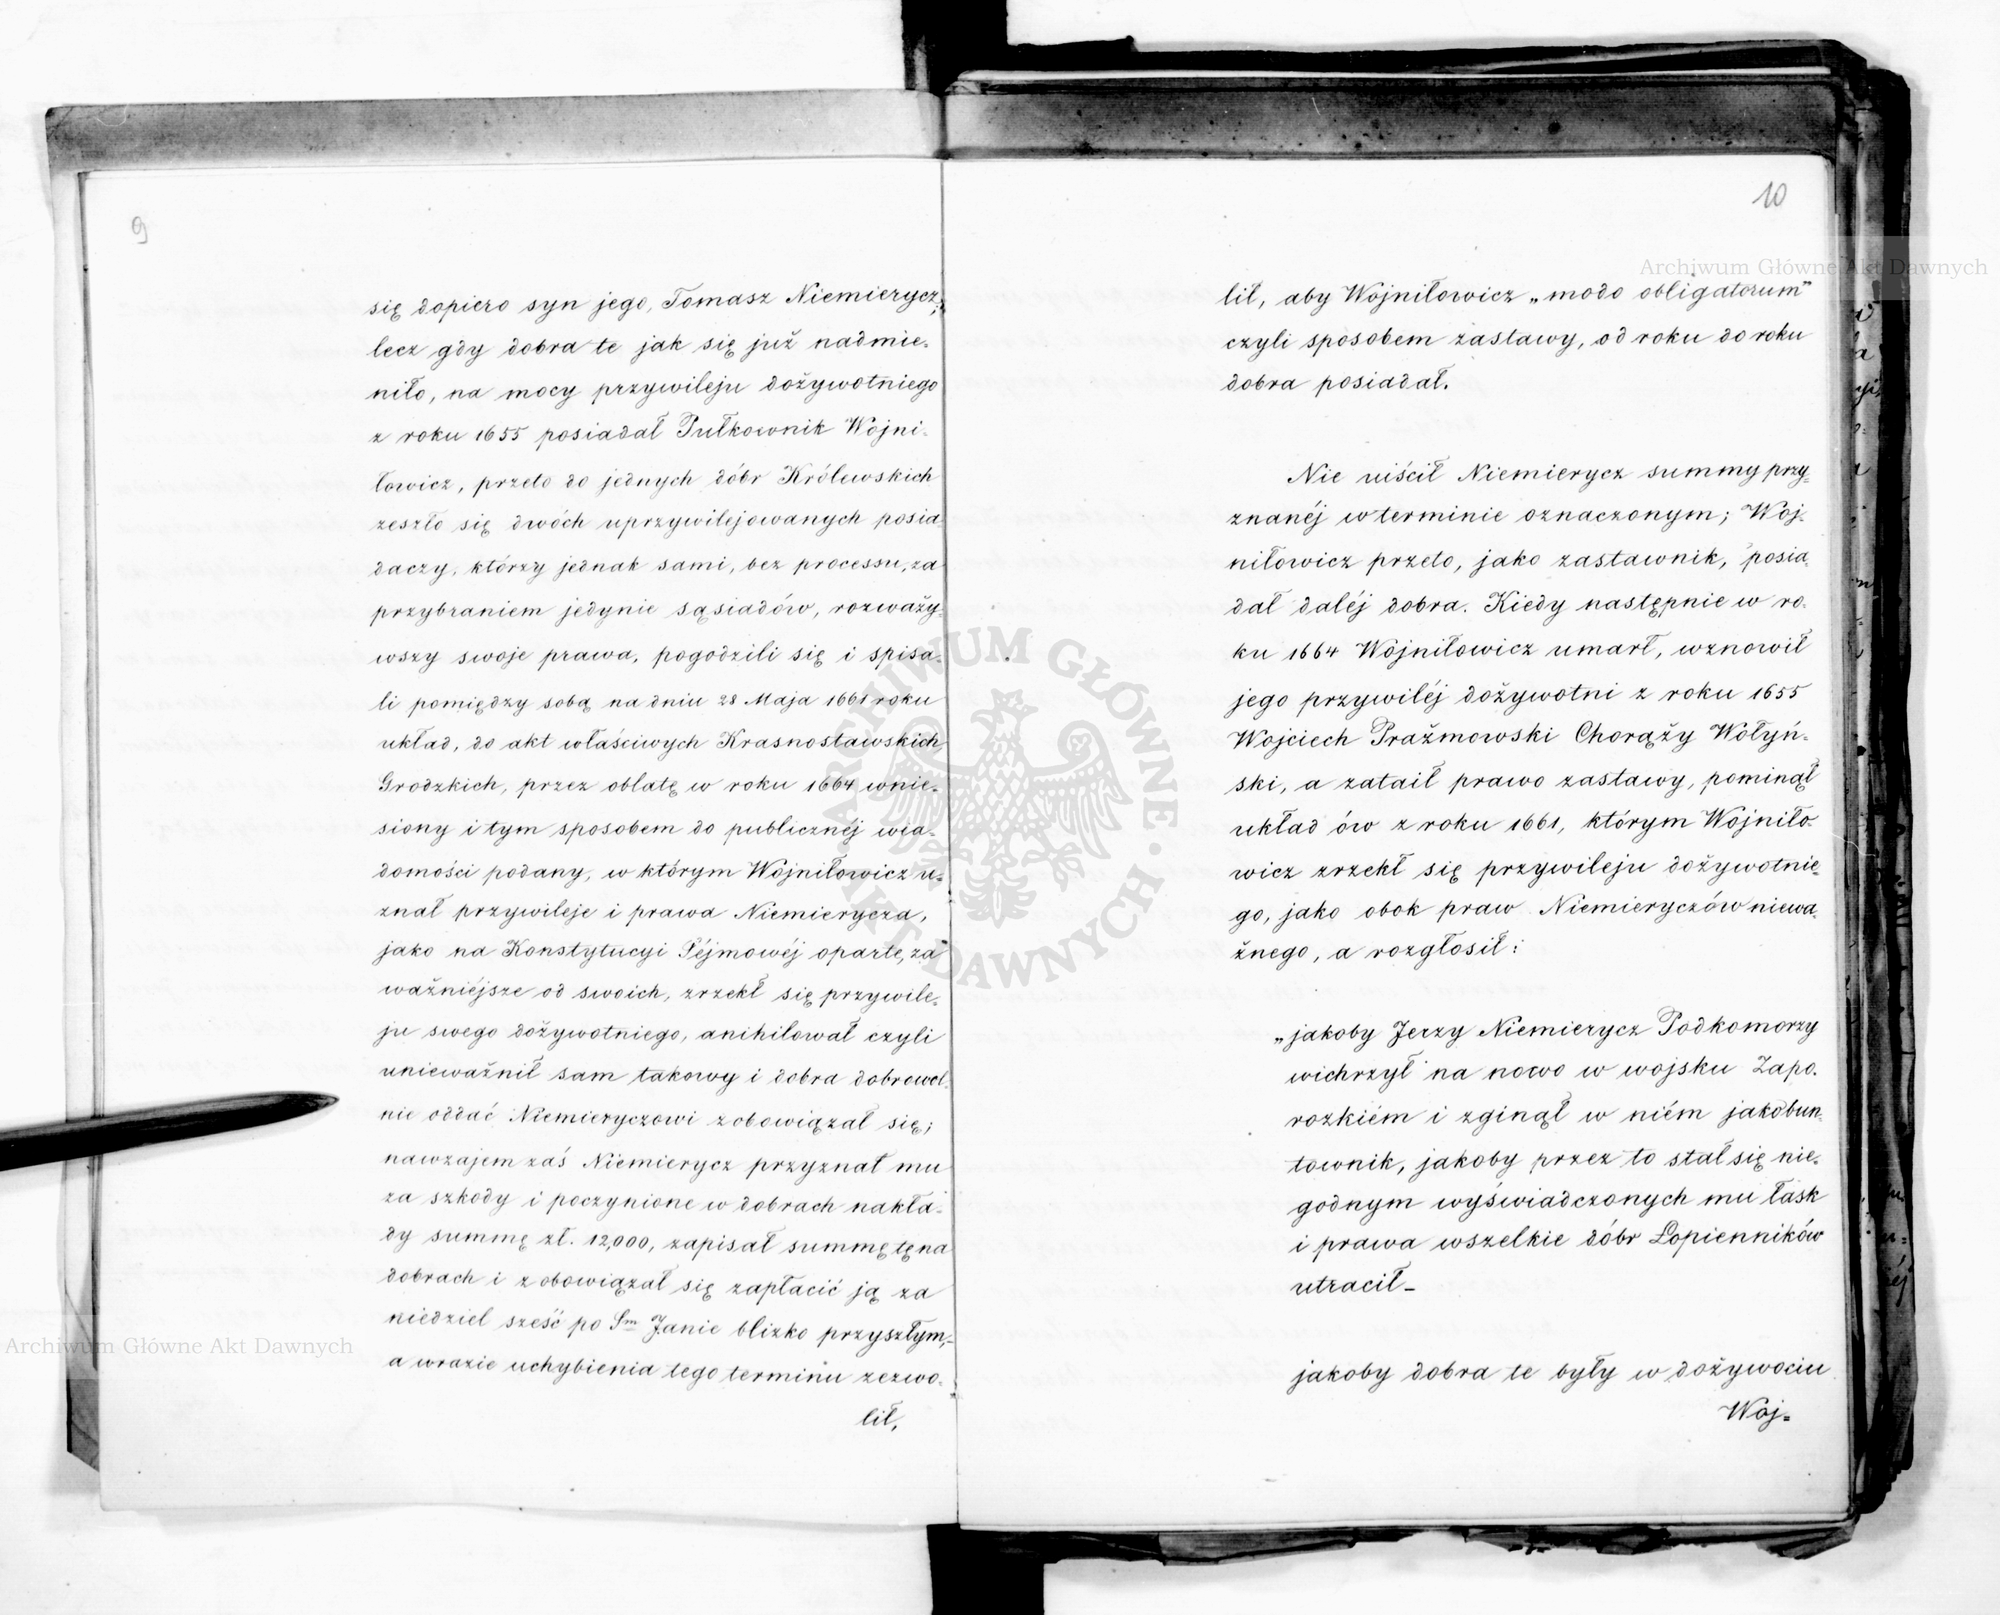 9
się dopiero syn jego, Tomasz Niemierycz,
lecz gdy dobra te jak się już nadmie-
niło, na mocy przywileju dożywotniego
z roku 1655 posiadał Pułkownik Wojni-
łowicz, przeto do jednych dóbr Królewskich
zeszło się dwóch uprzywilejowanych posia-
daczy, którzy jednak sami, bez processu, za
przybraniem jedynie sąsiadów, rozważy-
wszy swoje prawa, pogodzili się i spisa-
li pomiędzy sobą na dniu 28 Maja 1661 roku
układ, do akt właściwych Krasnostawskich
Grodzkich, przez oblatę w roku 1664 wnie-
siony i tym sposobem do publicznéj wia-
domości podany, w którym Wojniłowicz u-
znał przywileje i prawa Niemierycza,
jako na Konstytucyi Séjmowéj oparte, za
ważniéjsze od swoich, zrzekł się przywile-
ju swego dożywotniego, anihilował czyli
unieważnił sam takowy i dobra dobrowol-
nie oddać Niemieryczowi zobowiązał się;
nawzajem zaś Niemierycz przyznał mu
za szkody i poczynione w dobrach nakła-
dy summę zł. 12,000, zapisał summę tę na
dobrach i zobowiązał się zapłacić ją za
niedziel sześć po Sm Janie blizko przyszłym,
a wrazie uchybienia tego terminu zezwo-
lił,
10
lił, aby Wojniłowicz „modo obligatorum"
czyli sposobem zastawy, od roku do roku
dobra posiadał.
Nie uiścił Niemierycz summy przy-
znanéj w terminie oznaczonym; Woj-
niłowicz przeto, jako zastawnik, posia-
dał daléj dobra. Kiedy następnie w ro-
ku 1664 Wojniłowicz umarł, wznowił
jego przywiléj dożywotni z roku 1655
Wojciech Prażmowski Chorąży Wołyń-
ski, a zataił prawo zastawy, pominął
układ ów z roku 1661, którym Wojniło-
wicz zrzekł się przywileju dożywotnie-
go, jako obok praw Niemieryczów niewa-
żnego, a rozgłosił:
„jakoby Jerzy Niemierycz Podkomorzy
wichrzył na nowo w wojsku Zapo-
rozkiém i zginął w niém jako bun-
townik, jakoby przez to stał się nie-
godnym wyświadczonych mu łask
i prawa wszelkie dóbr Łopienników
utracił_
jakoby dobra te były w dożywociu
Woj-
Archiwum Główne Akt Dawnych
Archiwum Główne Akt Dawnych
ARCHIWUM GŁÓWNE AKT DAWNYCH